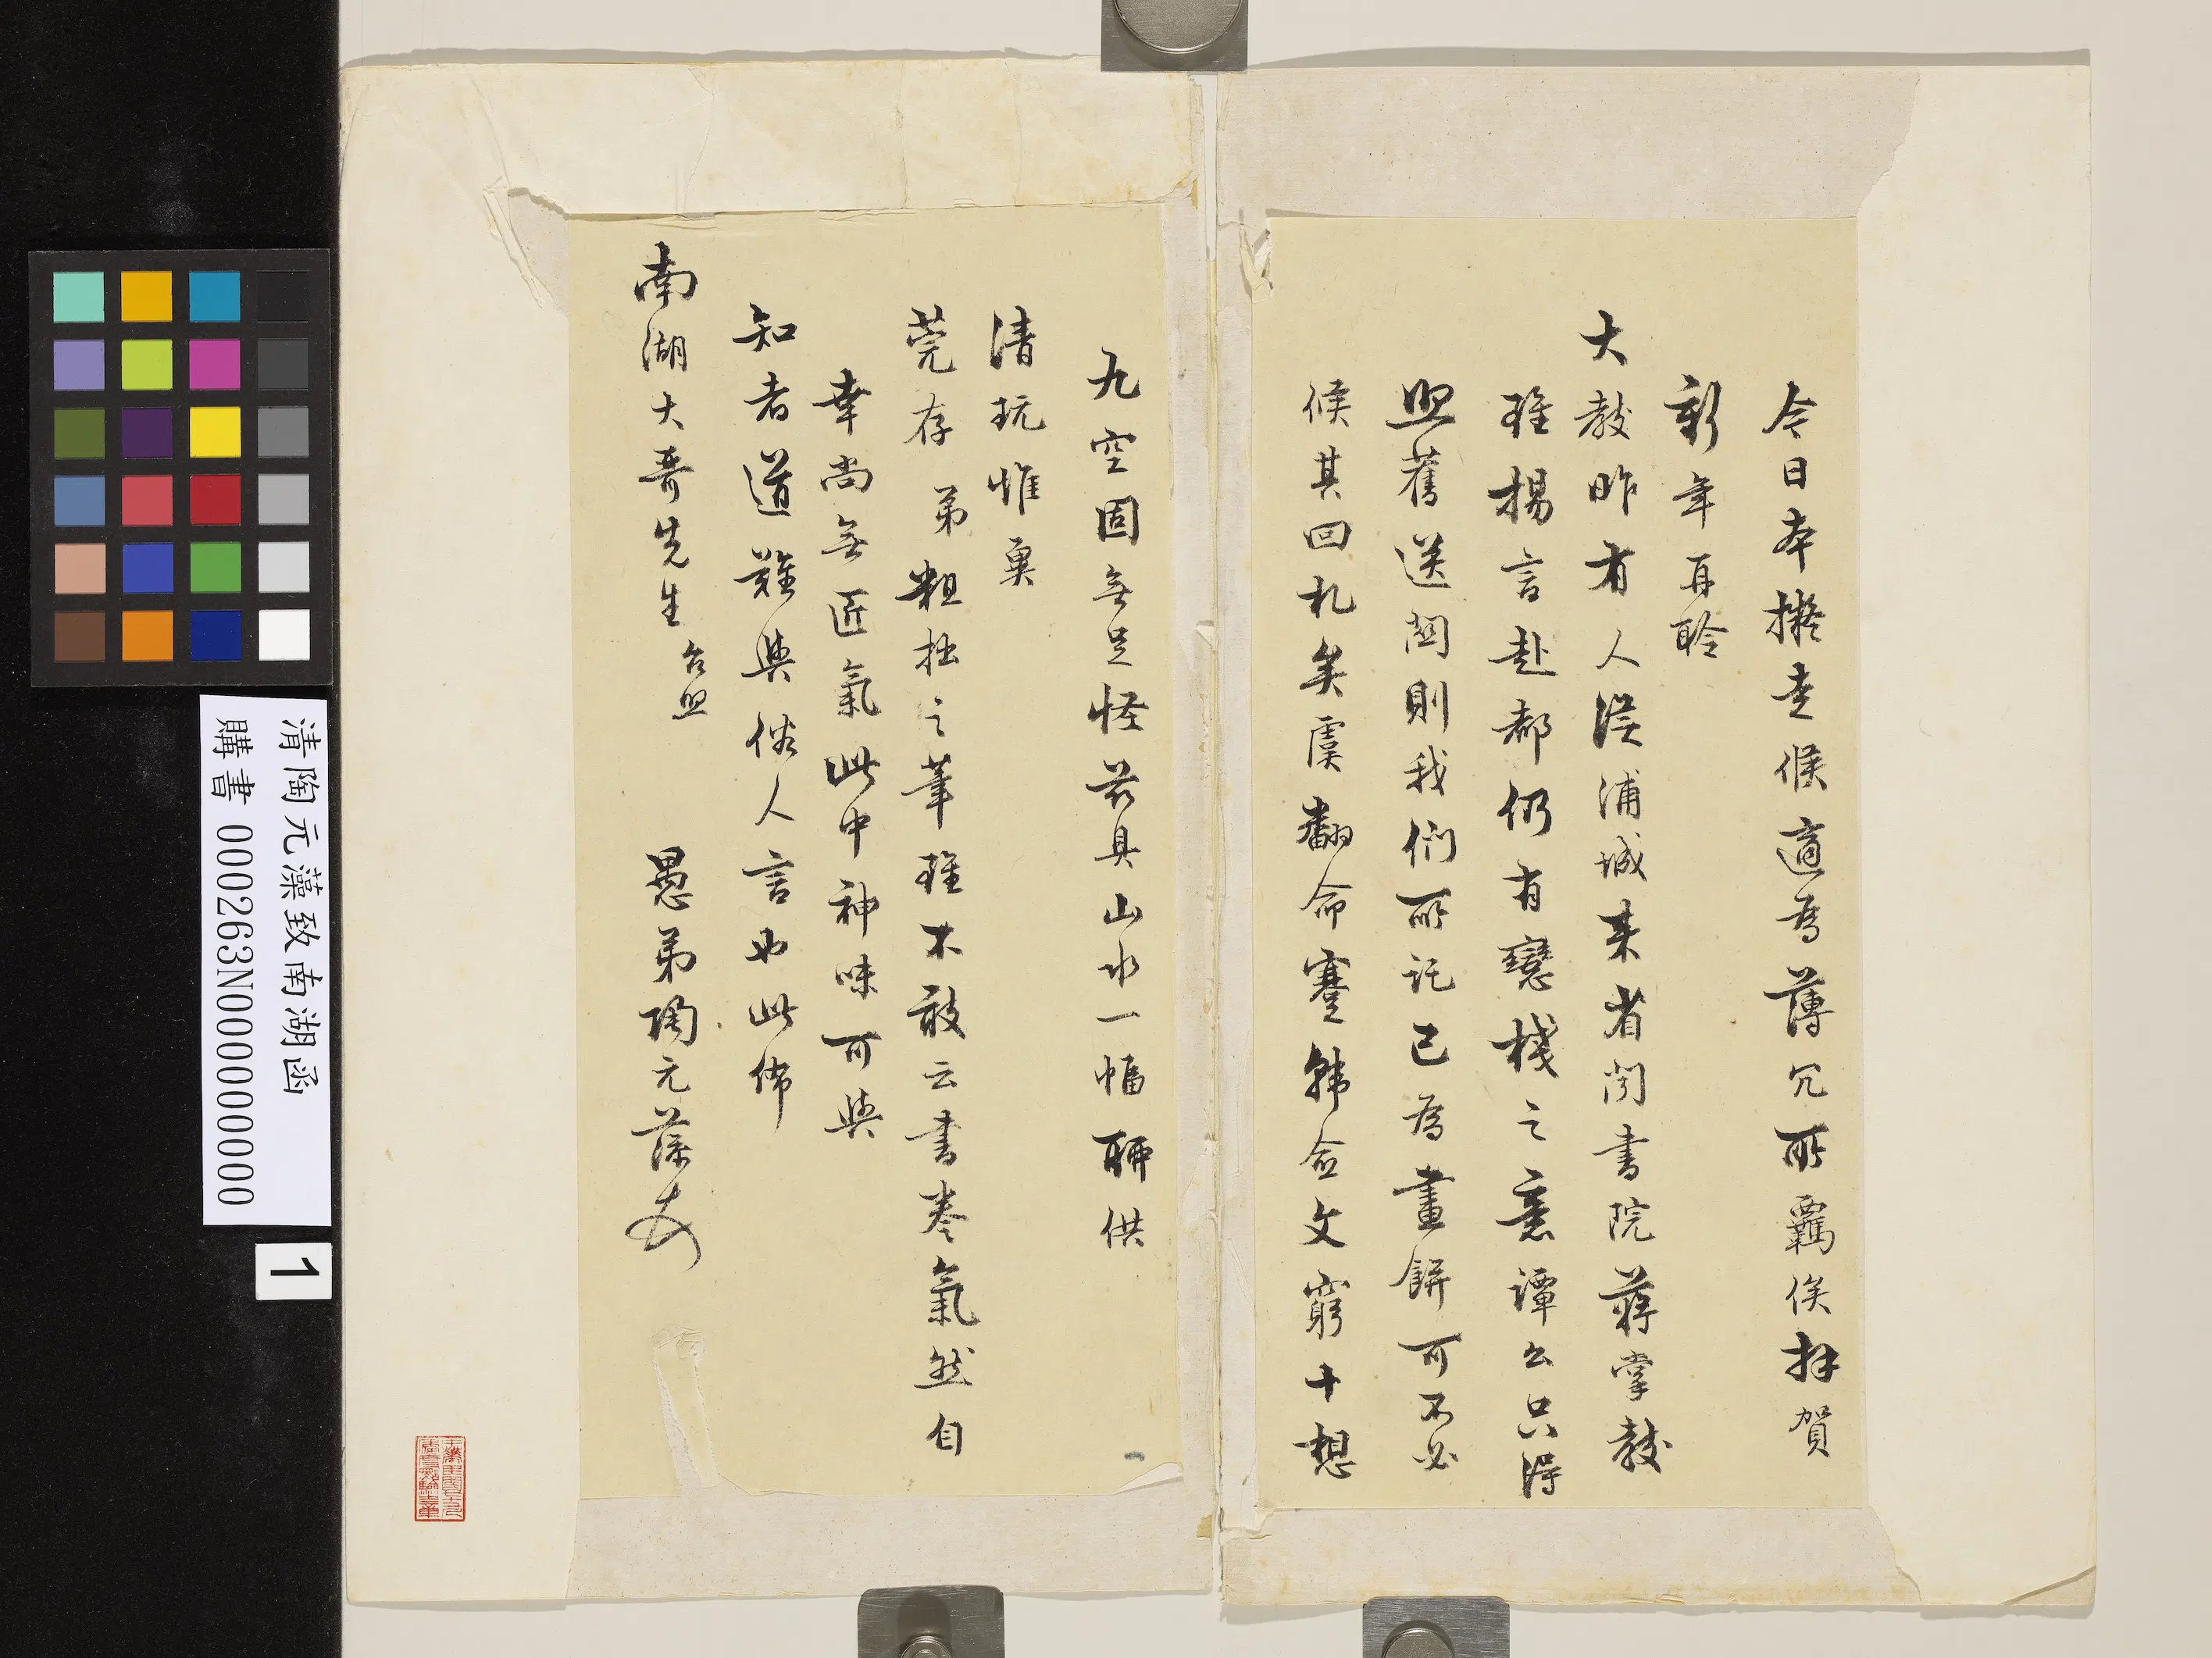 今日本擬走候適為薄冗所羈俟拜賀
新年再聆
大教昨有人從浦城來省聞書院蔣掌教
雖揚言赴都仍有戀棧之意譚公只得
照舊送關則我們所託已為畫餅可不必
候其回札矣虞翻命蹇韓愈文窮十想
九空固無足怪茲具山水一幅聊供
清玩惟冀
莞存弟粗拙之筆雖不敢云書卷氣然自
幸尚無匠氣此中神味可與
知者道難與俗人言也此佈
南湖大哥先生台照
愚弟陶元藻
清陶元藻致南湖函
購書 000263N000000000
1